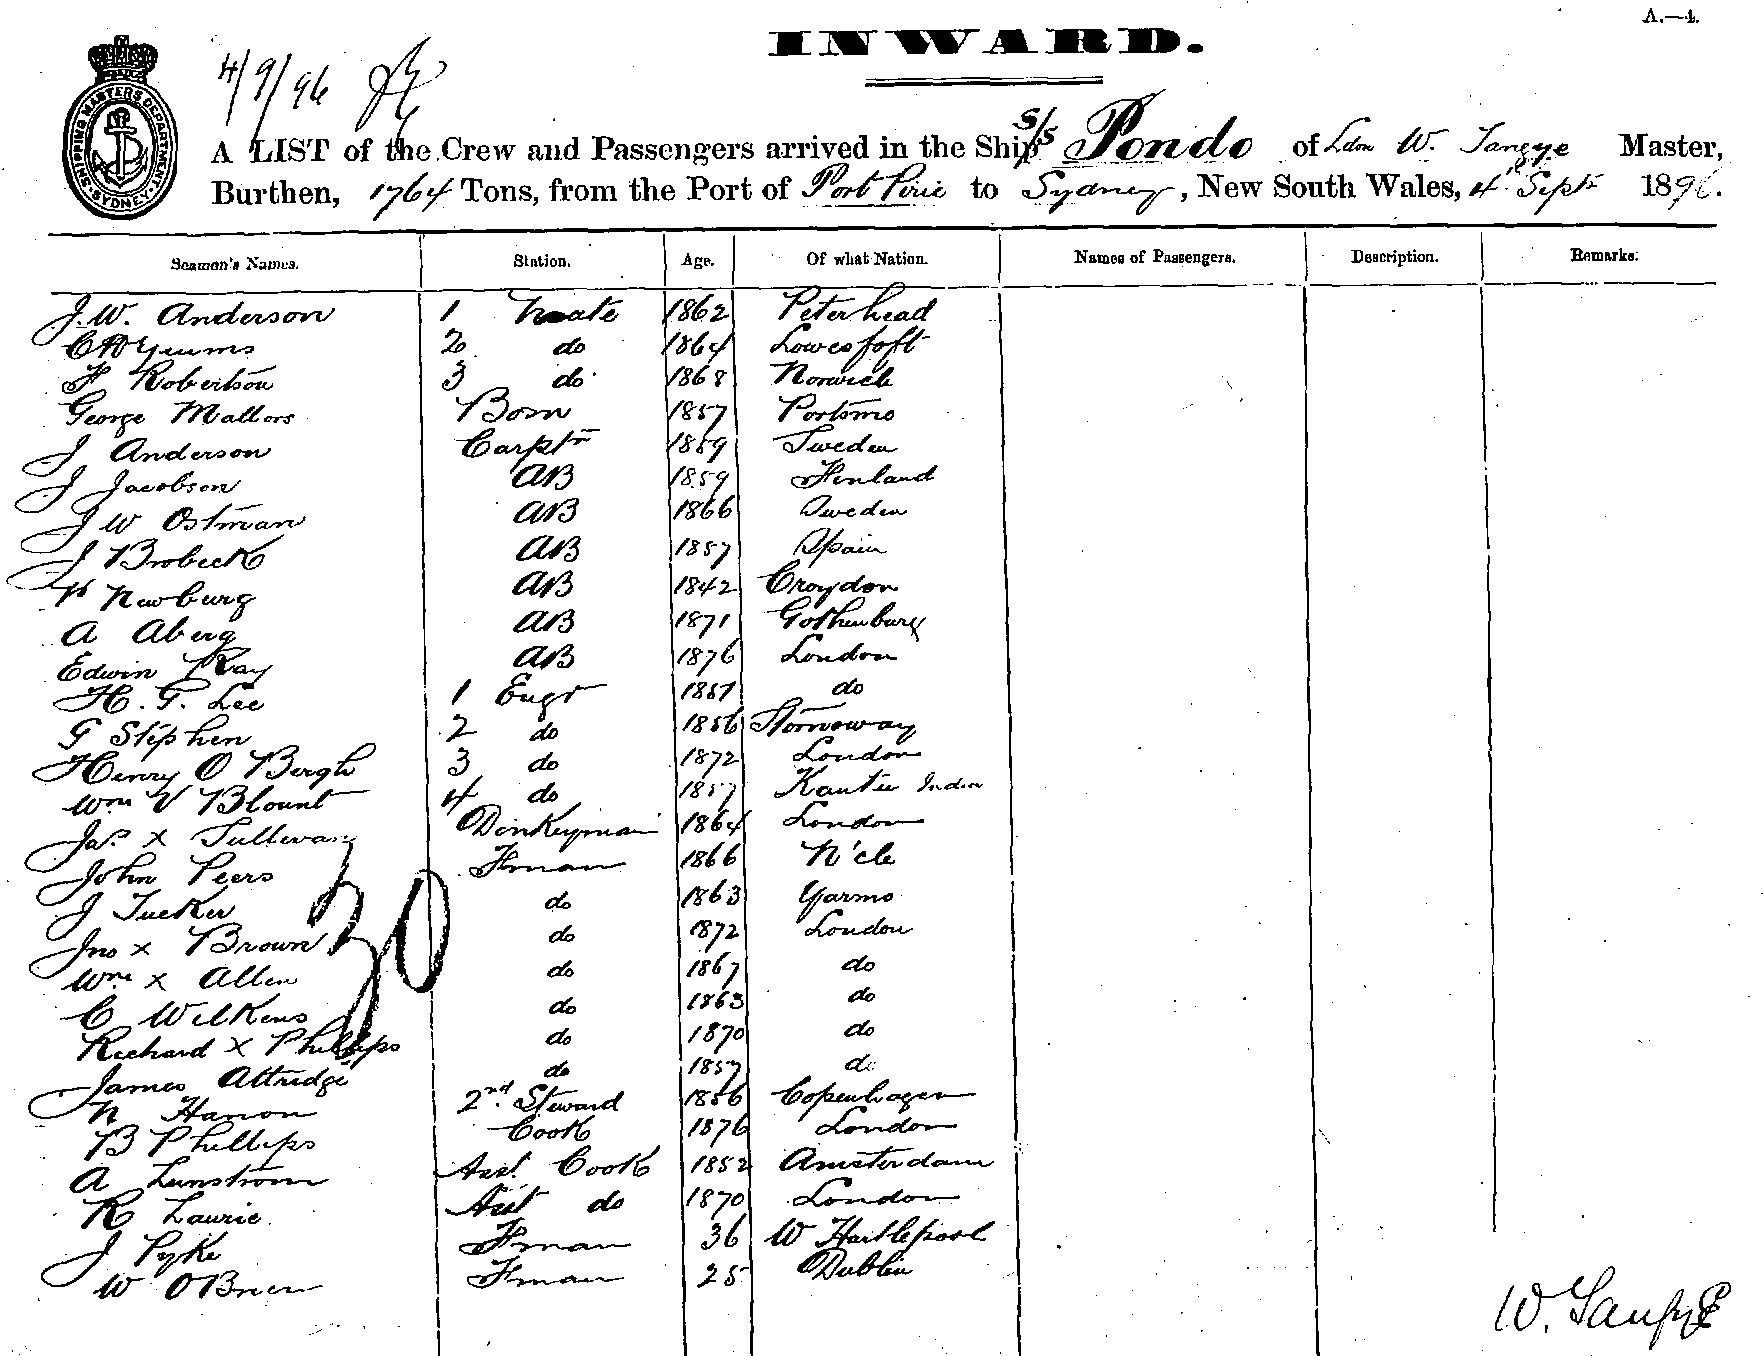 A.—4.
INWARD.
4/9/96
SHIPPING MASTERS DEPARTMENT SYDNEY
A LIST of the Crew and Passengers arrived in the Ship S/S Pondo of Ldn W. Tangye Master,
Burthen, 1764 Tons, from the Port of Port Pirie to Sydney, New South Wales, 4th Septr 1896.
Seamen's Names. Station. Age. Of what Nation. Names of Passengers. Description. Remarks.
J. W. Anderson 1 Mate 1862 Peterhead
2 do 1864 Lowestoft
F Robertson 3 do 1868 Norwich
George Mallors Bosn 1857 Portsmo
J Anderson Carptr 1859 Sweden
J Jacobson AB 1859 Finland
J W Ostman AB 1866 Sweden
J Brobeck AB 1857 Spain
Newburg AB 1842 Croydon
A Aberg AB 1871 Gothenburg
Edwin Kay AB 1876 London
H. G. Lee 1 Engr 1857 do
G Stephen 2 do 1856 Stornoway
Henry O Bergh 3 do 1872 London
Wm V Blount 4 do 1857 India
Jas. x Sullivan Donkeyman 1864 London
John Peers Fman 1866 N'cle
J Tucker do 1863 Yarmo
Jno x Brown do 1872 London
Wm x Allen do 1867 do
C Wilkens do 1863 do
Richard x Phillips do 1870 do
James Attridge do 1857 do
N Hanon 2nd. Steward 1856 Copenhagen
B Phillips Cook 1876 London
A Lunstrom Asst. Cook 1852 Amsterdam
R Laurie Asst do 1870 London
J Pyke Fman 36 W Hartlepool
W OBrien Fman 25 Dublin
30
W. Tangye